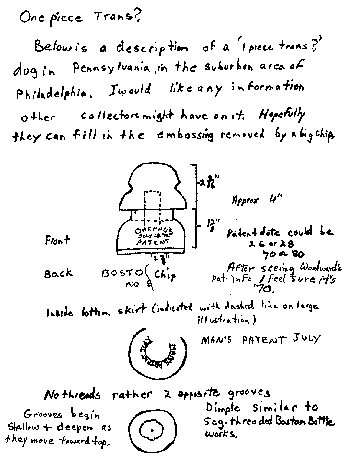 One piece Trans?
Below is a description of a "1 piece trans?"
dug in Pennsylvania, in the suburban area of
Philadelphia. I would like any information
other collectors might have on it. Hopefully
they can fill in the embossing removed by a big chip.
Approx 4"
Front
PATENT
Patent date could be
26 or 28
70 or 80
Back BOSTO
NO
Chip
After seeing Woodwards
Pat. info I feel sure it's
'70.
Inside bottom skirt (indicated with dashed line on large
illustration)
MAN'S PATENT JULY
No threads rather 2 opposite grooves
Grooves begin
shallow + deepen as
they move toward top.
Dimple similar to
Seg. threaded Boston Bottle
works.